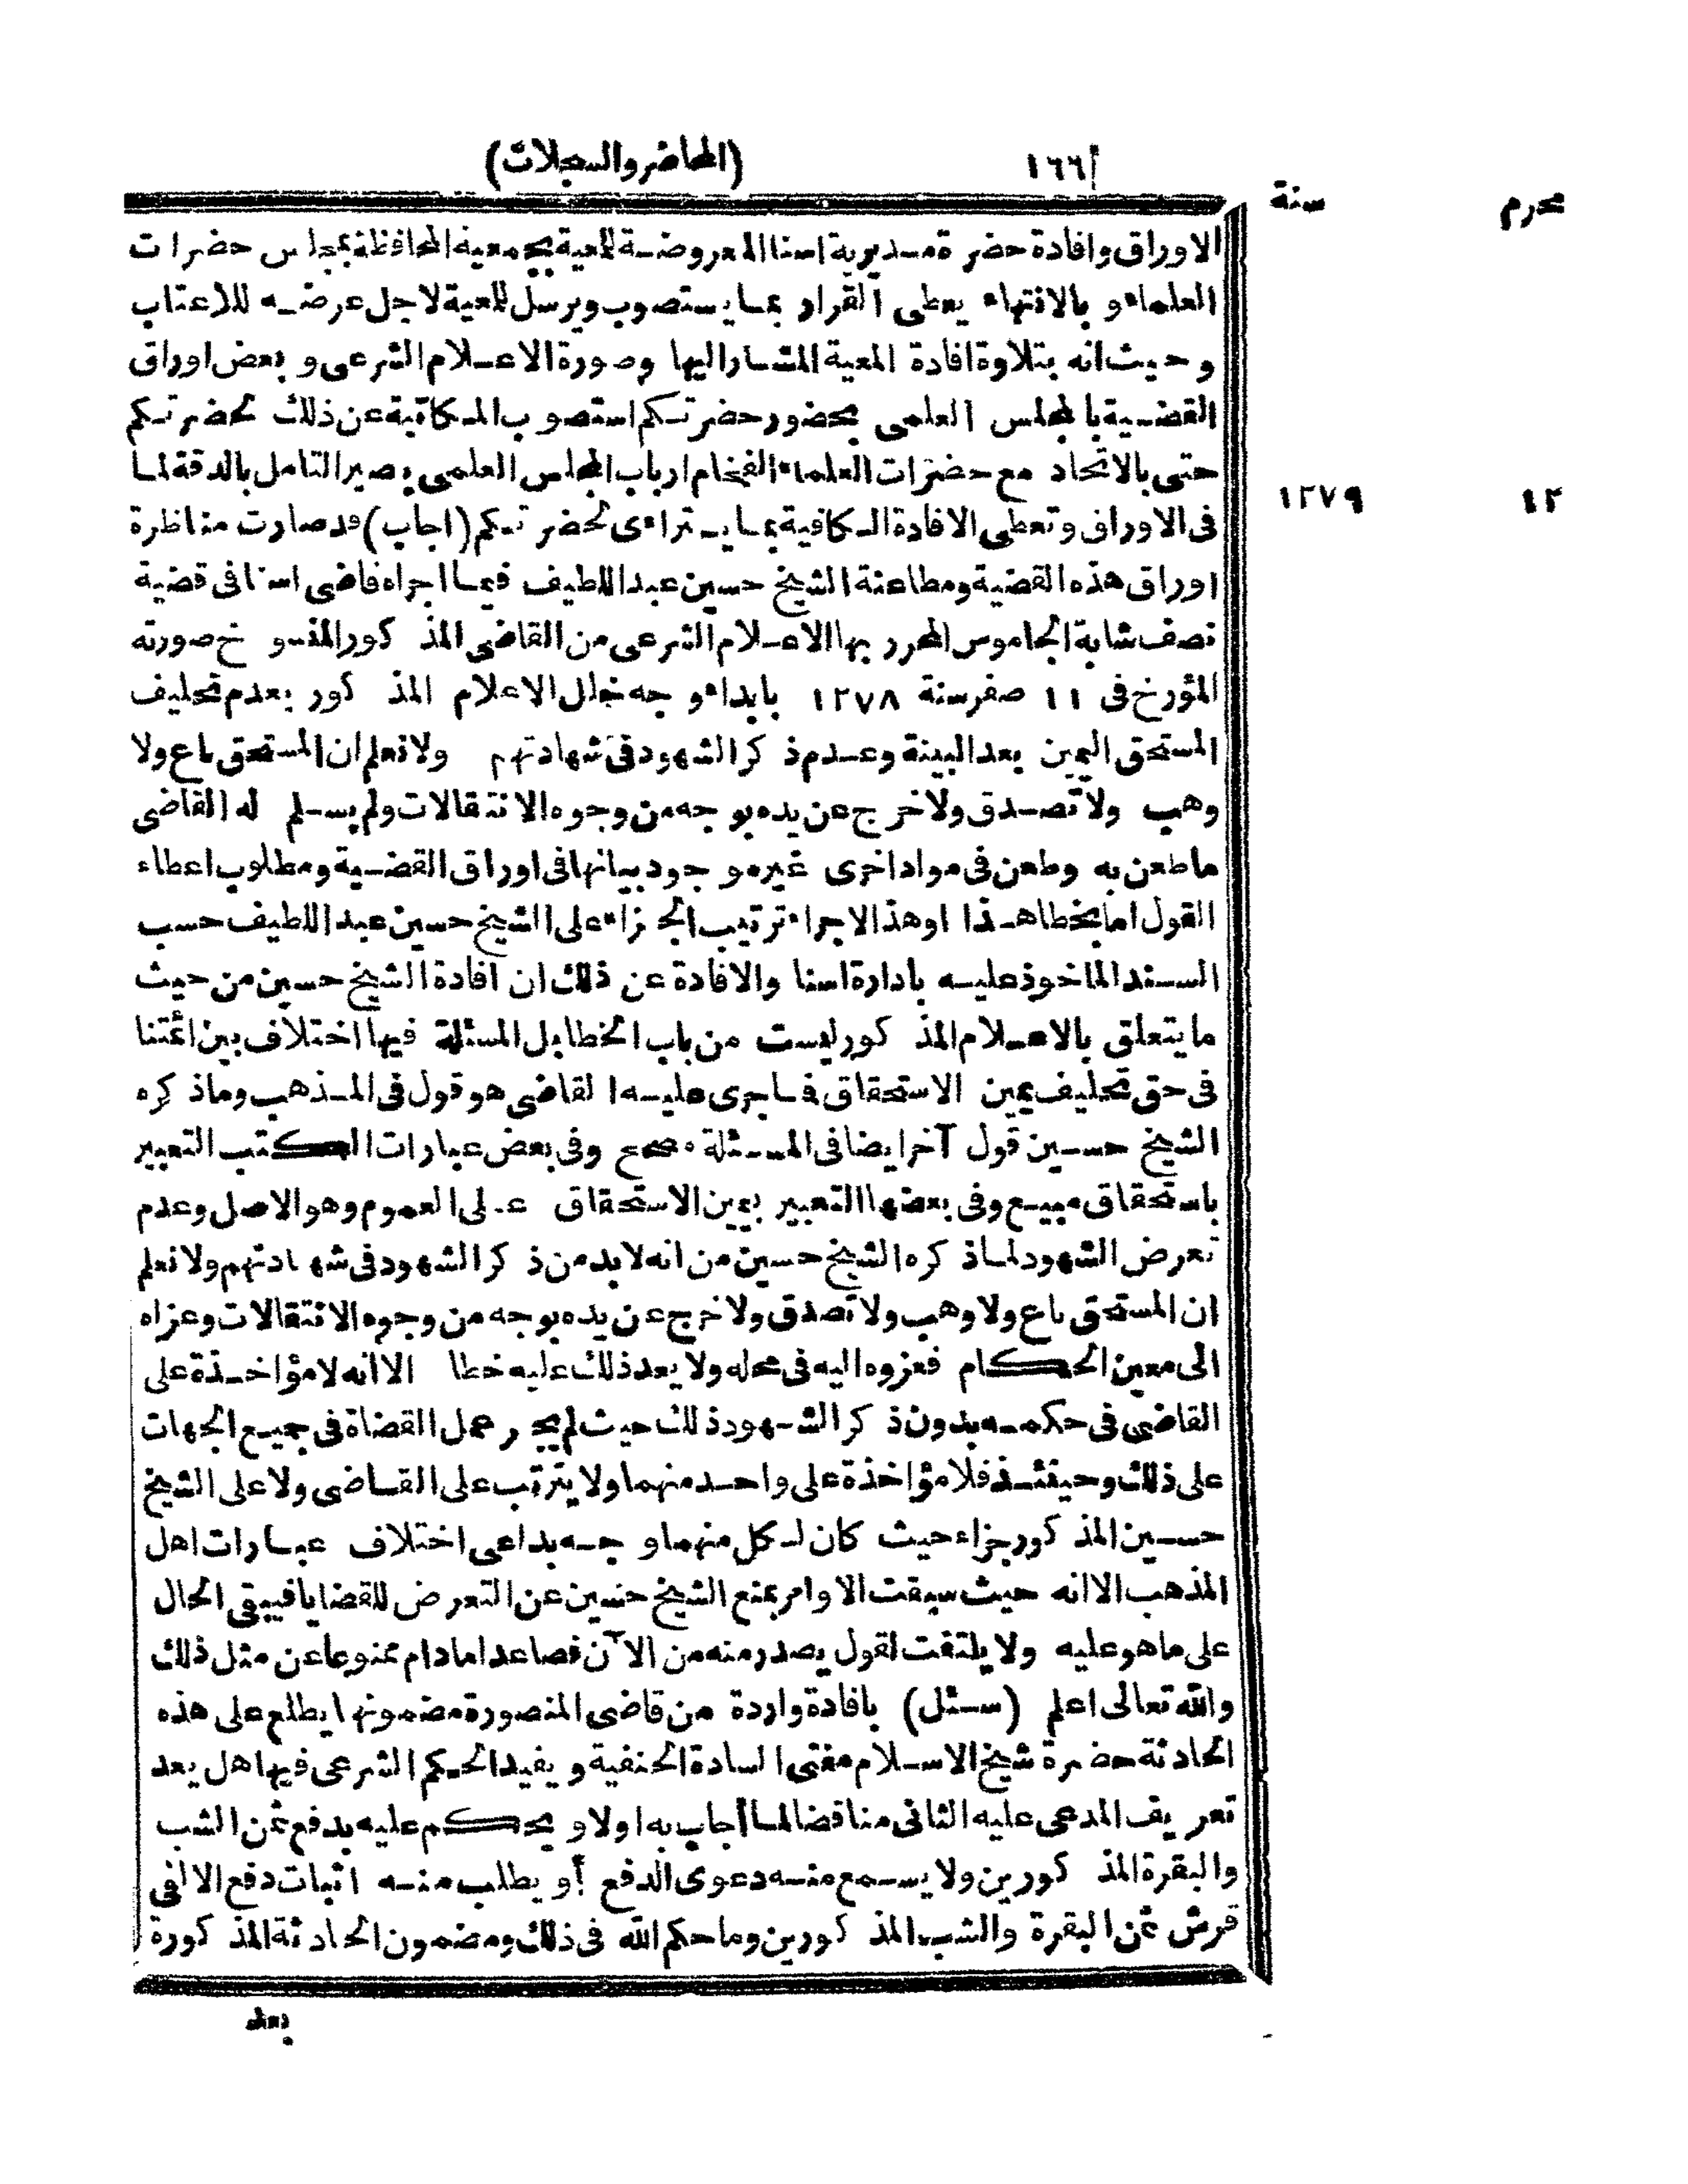 ١٦٦ (المحاضر والسجلات)
محرم سنة
الاوراق وافادة حضرة مديرية اسنا المعروضة للمعية بجمعية المحافظة بمجلس حضرات
العلماء و بالانتهاء يعطى القرار بما يستصوب ويرسل للمعية لاجل عرضه للاعتاب
وحيث انه بتلاوة افادة المعية المشار اليها وصورة الاعلام الشرعى و بعض اوراق
القضية بالمجلس العلمى بحضور حضرتكم استصوب المكاتبة عن ذلك لحضرتكم
حتى بالاتحاد مع حضرات العلماء الفخام ارباب المجلس العلمى يصير التامل بالدقة لما
١٢ ١٢٧٩
فى الاوراق وتعطى الافادة الكافية بما يتراءى لحضرتكم (اجاب) قد صارت مناظرة
اوراق هذه القضية ومطاعنة الشيخ حسين عبد اللطيف فيما اجراه قاضى اسنا فى قضية
نصف شابة الجاموس المحرر بها الاعلام الشرعى من القاضى المذكور المنسوخ صورته
المؤرخ فى ١١ صفر سنة ١٢٧٨ بابداء وجه خلل الاعلام المذكور بعدم تحليف
المستحق اليمين بعد البينة وعدم ذكر الشهود فى شهادتهم ولا نعلم ان المستحق باع ولا
وهب ولا تصدق ولا خرج عن يده بوجه من وجوه الانتقالات ولم يسلم له القاضى
ما طعن به وطعن فى مواد اخرى غير موجود بيانها فى اوراق القضية ومطلوب اعطاء
القول اما بخطا هذا او هذا الاجراء ترتيب الجزاء على الشيخ حسين عبد اللطيف حسب
السند الماخوذ عليه بادارة اسنا والافادة عن ذلك ان افادة الشيخ حسين من حيث
ما يتعلق بالاعلام المذكور ليست من باب الخطا بل المسئلة فيها اختلاف بين ائمتنا
فى حق تحليف يمين الاستحقاق فما جرى عليه القاضى هو قول فى المذهب وما ذكره
الشيخ حسين قول آخر ايضا فى المسئلة مصحح وفى بعض عبارات الكتب التعبير
باستحقاق مبيع وفى بعضها التعبير بيمين الاستحقاق على العموم وهو الاصل وعدم
تعرض الشهود لما ذكره الشيخ حسين من انه لا بد من ذكر الشهود فى شهادتهم ولا نعلم
ان المستحق باع ولا وهب ولا تصدق ولا خرج عن يده بوجه من وجوه الانتقالات وعزاه
الى معين الحكام فعزوه اليه فى محله ولا يعد ذلك عليه خطا الا انه لا مؤاخذة على
القاضى فى حكمه بدون ذكر الشهود ذلك حيث لم يجر عمل القضاة فى جميع الجهات
على ذلك وحينئذ فلا مؤاخذة على واحد منهما ولا يترتب على القاضى ولا على الشيخ
حسين المذكور جزاء حيث كان لكل منهما وجه بداعى اختلاف عبارات اهل
المذهب الا انه حيث سبقت الاوامر بمنع الشيخ حسين عن التعرض للقضايا فيبقى الحال
على ما هو عليه ولا يلتفت لقول يصدر منه من الآن فصاعدا مادام ممنوعا عن مثل ذلك
والله تعالى اعلم (سئل) بافادة واردة من قاضى المنصورة مضمونها يطلع على هذه
الحادثة حضرة شيخ الاسلام مفتى السادة الحنفية و يفيد الحكم الشرعى فيها هل يعد
تعريف المدعى عليه الثانى مناقضا لما أجاب به اولا و يحكم عليه بدفع ثمن الشب
والبقرة المذكورين ولا يسمع منه دعوى الدفع أو يطلب منه اثبات دفع الالفى
قرش ثمن البقرة والشب المذكورين وما حكم الله فى ذلك ومضمون الحادثة المذكورة